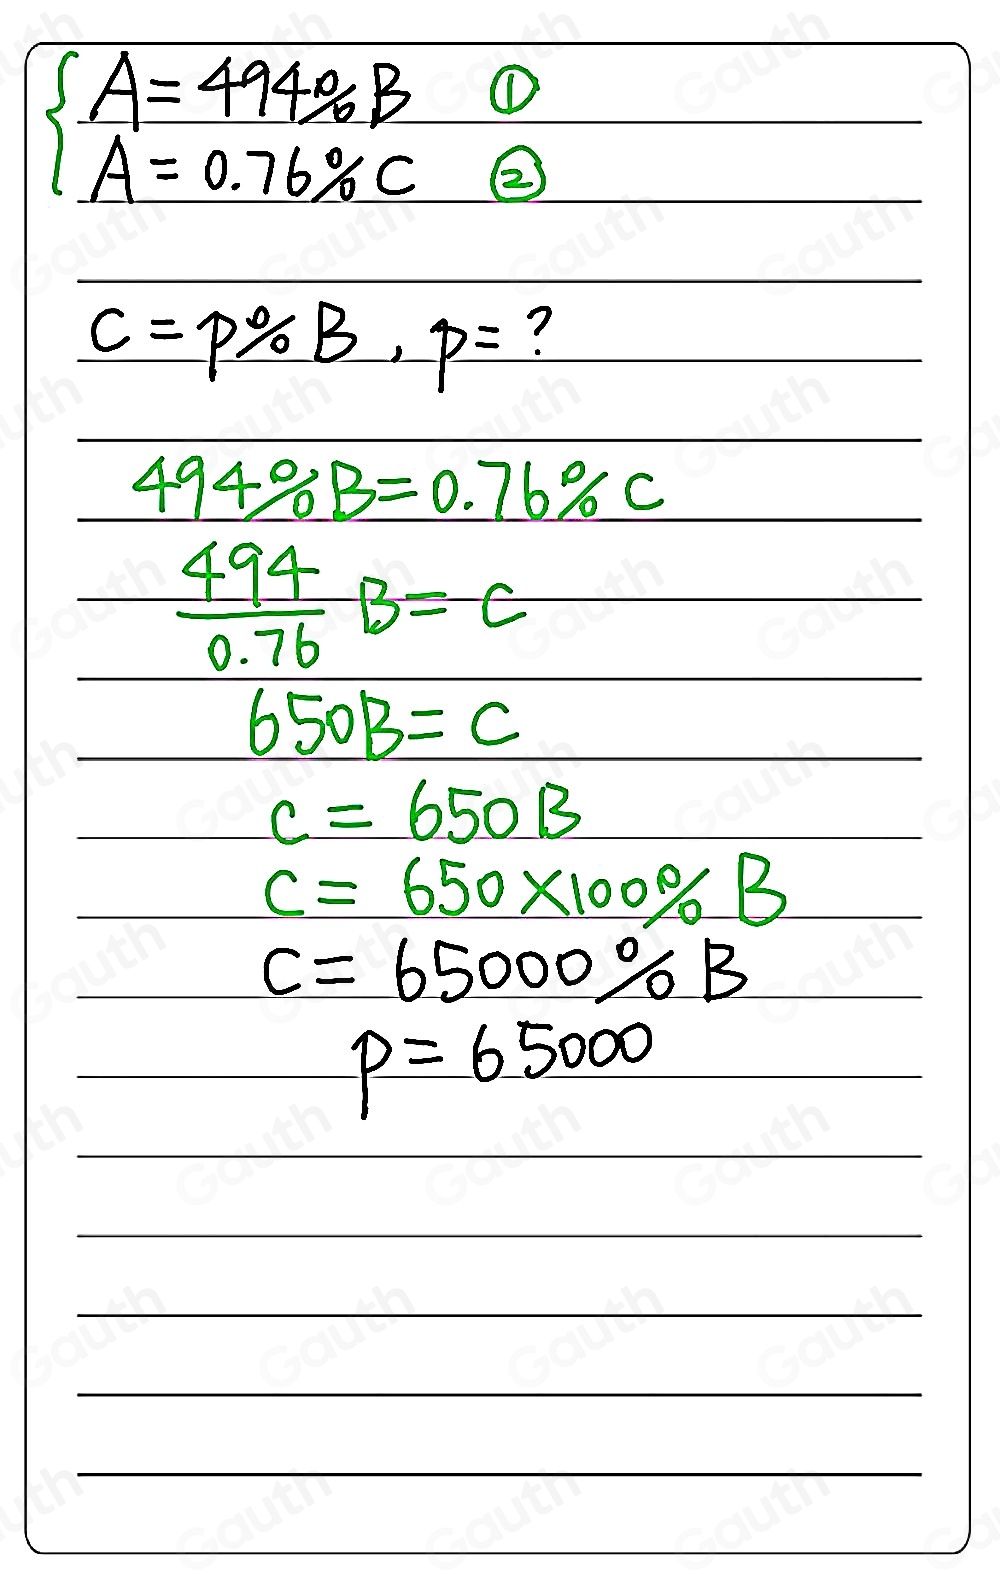 A = 494% B ①
A = 0.76% C ②
C = p% B , p = ?
494% B = 0.76% C
494/0.76 B = C
650B = C
C = 650 B
C = 650 × 100% B
C = 65000% B
p = 65000
Gauth